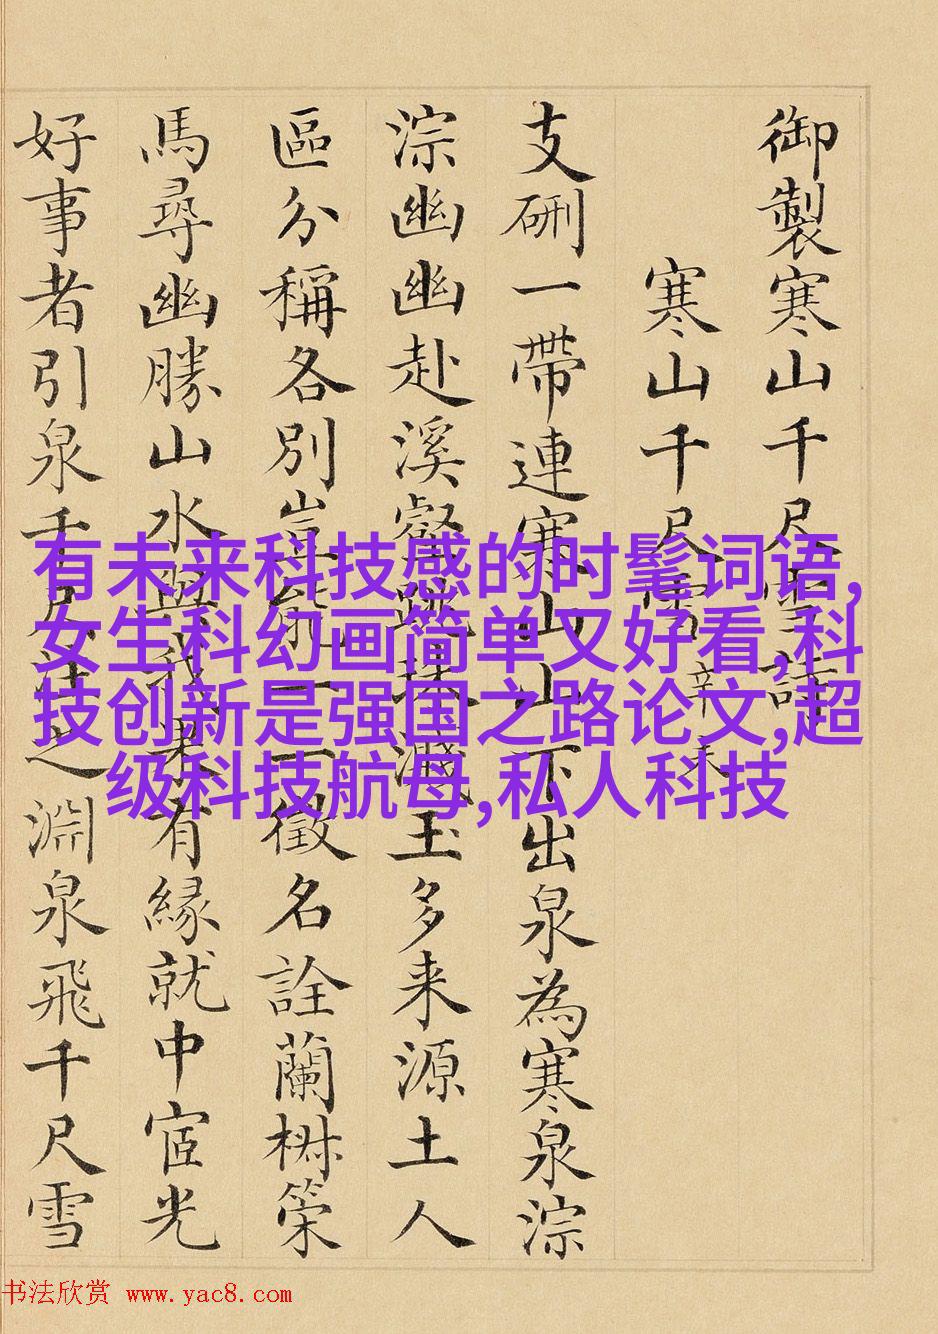 御製寒山千尺雪詩
寒山千尺雪 辛未
支硎一帶連寒山山下出泉為寒泉淙
淙幽幽赴溪壑跳珠濺玉多来源土人
區分稱各別豈能一一徵名詮蘭椒策
馬尋幽勝山水與我果有緣就中宧光
好事者引泉千尺注之淵泉飛千尺雪
有未来科技感的时髦词语,
女生科幻画简单又好看,科
技创新是强国之路论文,超
级科技航母,私人科技
书法欣赏 www.yac8.com